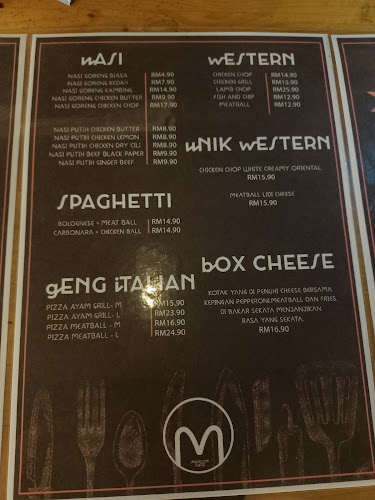 NASI
NASI GORENG BIASA RM4.90
NASI GORENG KEDAH RM7.90
NASI GORENG KAMBING RM14.90
NASI GORENG CHICKEN BUTTER RM9.90
NASI GORENG CHICKEN CHOP RM17.90
NASI PUTIH CHICKEN BUTTER RM8.90
NASI PUTIH CHICKEN LEMON RM8.90
NASI PUTIH CHICKEN DRY CILI RM8.90
NASI PUTIH BEEF BLACK PAPER RM9.90
NASI PUTIH GINGER BEEF RM9.90
SPAGHETTI
BOLOGNESE + MEAT BALL RM14.90
CARBONARA + CHICKEN BALL RM14.90
gENG iTALIAN
PIZZA AYAM GRILL - M RM15.90
PIZZA AYAM GRILL - L RM23.90
PIZZA MEATBALL - M RM16.90
PIZZA MEATBALL - L RM24.90
wESTERN
CHICKEN CHOP RM14.90
CHICKEN GRILL RM15.90
LAMB CHOP RM25.90
FISH AND CHIP RM12.90
MEATBALL RM12.90
uNIK wESTERN
CHICKEN CHOP WHITE CREAMY ORIENTAL
RM15.90
MEATBALL LIDI CHEESE
RM15.90
bOX CHEESE
KOTAK YANG DI PENUHI CHEESE BERSAMA
KEPINGAN PEPPERONI,MEATBALL DAN FRIES.
DI BAKAR SEKATA MENJANJIKAN
RASA YANG SEKATA.
RM16.90
M
CAFE